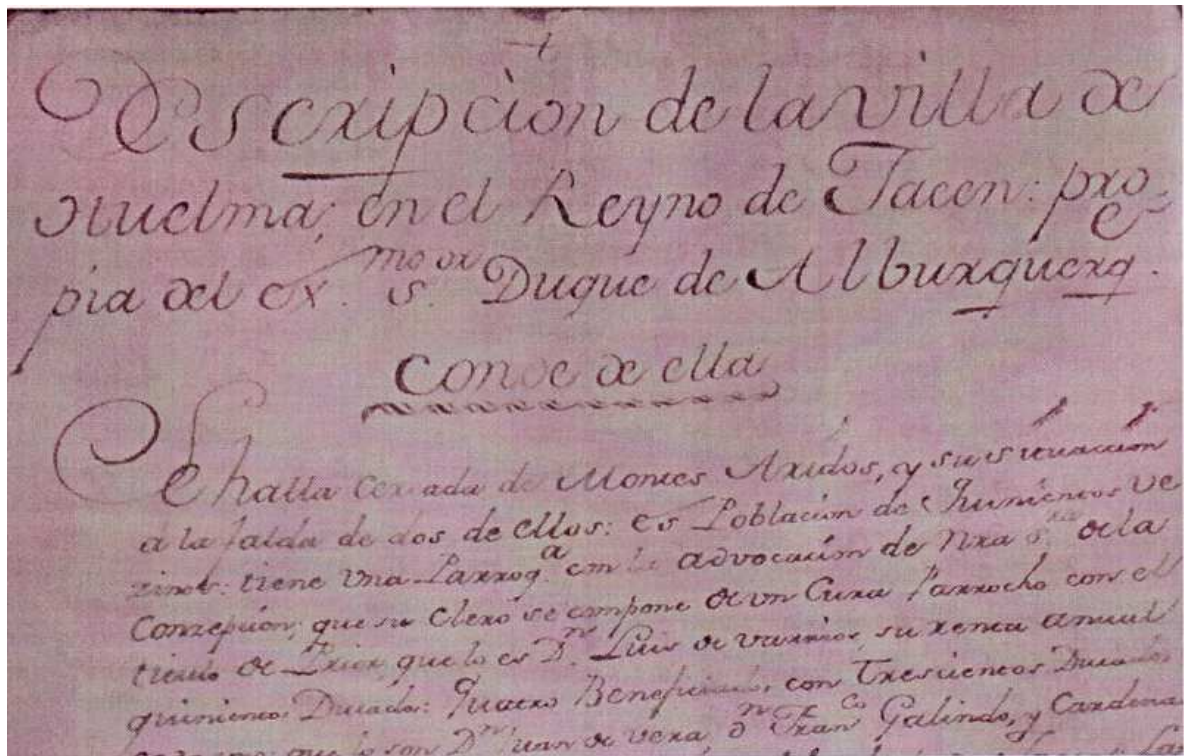 Descripcion de la villa de
Huelma; en el Reyno de Jaeen: pro-
pia del ex.mo s.or Duque de Alburquerq.e
Conde de ella
Se halla Cercada de Montes Aridos, y su situación
a la falda de dos de ellos: es Poblacion de Quinientos ve
zinos: tiene una Parroq.a con la advocación de Nra S.ra de la
Conzepcion, que su Clero se compone de un Cura Parrocho con el
titulo de Prior, que lo es D.n Luis de Varrios, su renta annual
quinientos Ducados: Quatro Beneficiados con Trescientos Ducados
que lo son D.n Juan de Vera, D.n Fran.co Galindo, y Cardena